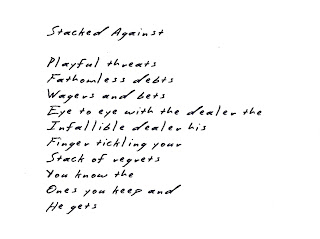 Stacked Against
Playful threats
Fathomless debts
Wagers and bets
Eye to eye with the dealer the
Infallible dealer his
Finger tickling your
Stack of regrets
You know the
Ones you keep and
He gets